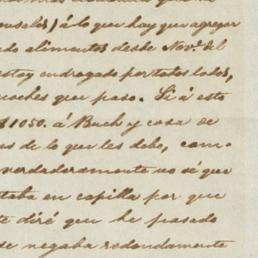 nsuales) á lo que hay que agregar
do alimentos desde Nov.e el
estoy endrogado por todos lados,
noches que paso. Si á esto
$1050. á Buch y cosa de
es de lo que les debo, com-
verdaderamente no sé que
taba en capilla por que
te diré que he pasado
de negaba redondamente